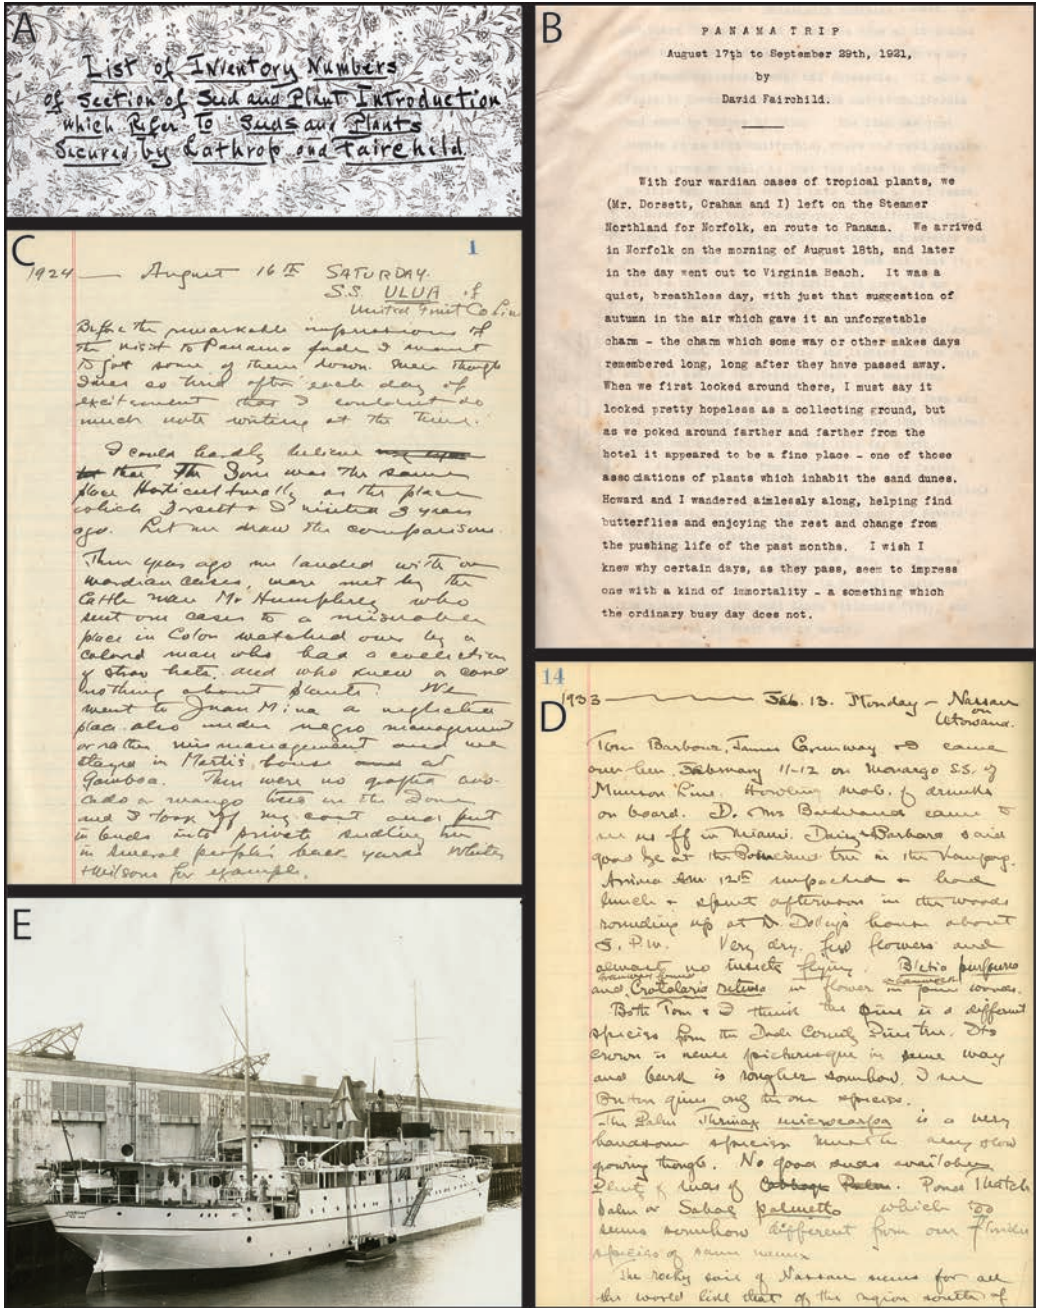 A
List of Inventory Numbers
of Section of Seed and Plant Introduction
which Refer To Seeds and Plants
Secured by Lathrop and Fairchild
B
PANAMA TRIP
August 17th to September 29th, 1921,
by
David Fairchild.
With four wardian cases of tropical plants, we
(Mr. Dorsett, Graham and I) left on the Steamer
Northland for Norfolk, en route to Panama. We arrived
in Norfolk on the morning of August 18th, and later
in the day went out to Virginia Beach. It was a
quiet, breathless day, with just that suggestion of
autumn in the air which gave it an unforgetable
charm - the charm which some way or other makes days
remembered long, long after they have passed away.
When we first looked around there, I must say it
looked pretty hopeless as a collecting ground, but
as we poked around farther and farther from the
hotel it appeared to be a fine place - one of those
associations of plants which inhabit the sand dunes.
Howard and I wandered aimlessly along, helping find
butterflies and enjoying the rest and change from
the pushing life of the past months. I wish I
knew why certain days, as they pass, seem to impress
one with a kind of immortality - a something which
the ordinary busy day does not.
C
1
1924 — August 16th SATURDAY.
S.S. ULUA of
United Fruit Co Line
Before the remarkable impressions of
the visit to Panama fade I want
to jot some of them down. Even though
I was so tired after each day of
excitement that I couldn't do
much note writing at the time.
I could hardly believe
that The Zone was the same
place Horticulturally as the place
which Dorsett & I visited 3 years
ago. Let me draw the comparison.
Three years ago we landed with our
wardian cases, were met by the
Cattle man Mr Humphrey who
sent our cases to a miserable
place in Colon watched over by a
colored man who had a collection
of straw hats, and who knew or cared
nothing about plants. We
went to Juan Mina a neglected
place also under negro management
or rather mismanagement and we
stayed in house at
Gamboa. There were no grafted avo-
cado or mango trees in the Zone
and I took off my coat and put
in buds into private seedling trees
in several people's back yards Whites
& Wilsons for example.
14
D
1933 — Feb. 13. Monday — Nassau
on
Utowana.
Tom Barbour, James Greenway & I came
over here February 11-12 on Monargo S.S. of
Munson Line. Howling mob of drunks
on board. D. Mrs came to
see us off in Miami. Daisy & Barbara said
good bye at the tree in the Kampong.
Arrived 12th unpacked & had
lunch & spent afternoon in the woods
rounding up at Dr. Dolley's house about
5. P.m. Very dry. few flowers and
almost no insects flying. Bletia purpurea
and Crotolaria retusa in flower in pine woods.
Both Tom & I think the pine is a different
species from the Dade County Pine tree. Its
crown is more picturesque in some way
and bark is rougher somehow. I see
Britton gives only the one species.
The Palm Thrinax microcarpa is a very
handsome species must be very slow
growing though. No good seeds available
Plenty of seeds of Cabbage Palm. Pond Thatch
Palm or Sabal palmetto which too
seems somehow different from our Florida
species of same name.
The rocky soil of Nassau seems for all
the world like that of the region south of
E